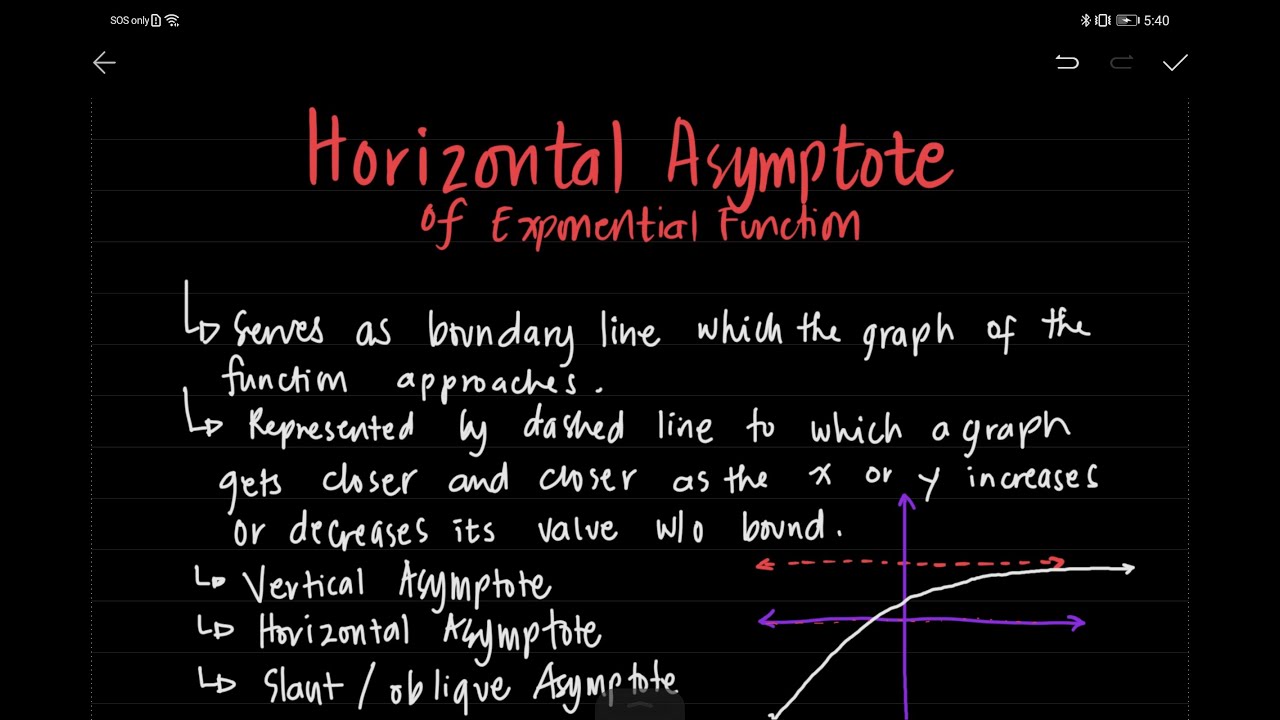 SOS only 5:40
Horizontal Asymptote
of Exponential Function
Serves as boundary line which the graph of the
function approaches.
Represented by dashed line to which a graph
gets closer and closer as the x or y increases
or decreases its value w/o bound.
Vertical Asymptote
Horizontal Asymptote
Slant / oblique Asymptote